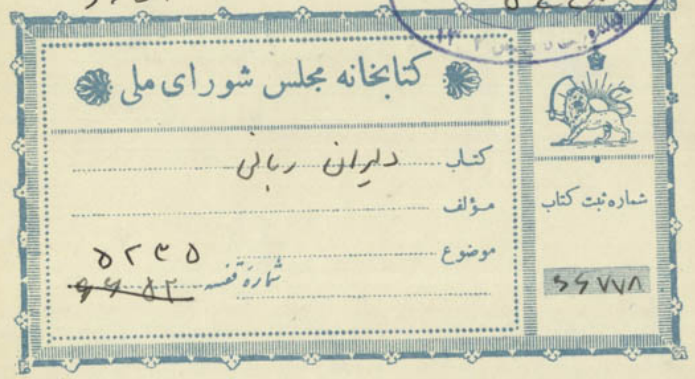 کتابخانه مجلس شورای ملی
کتاب دیوان ربانی
مؤلف
موضوع
شماره قفسه ۵۲۳۵
شماره ثبت کتاب
۶۶۷۷۸